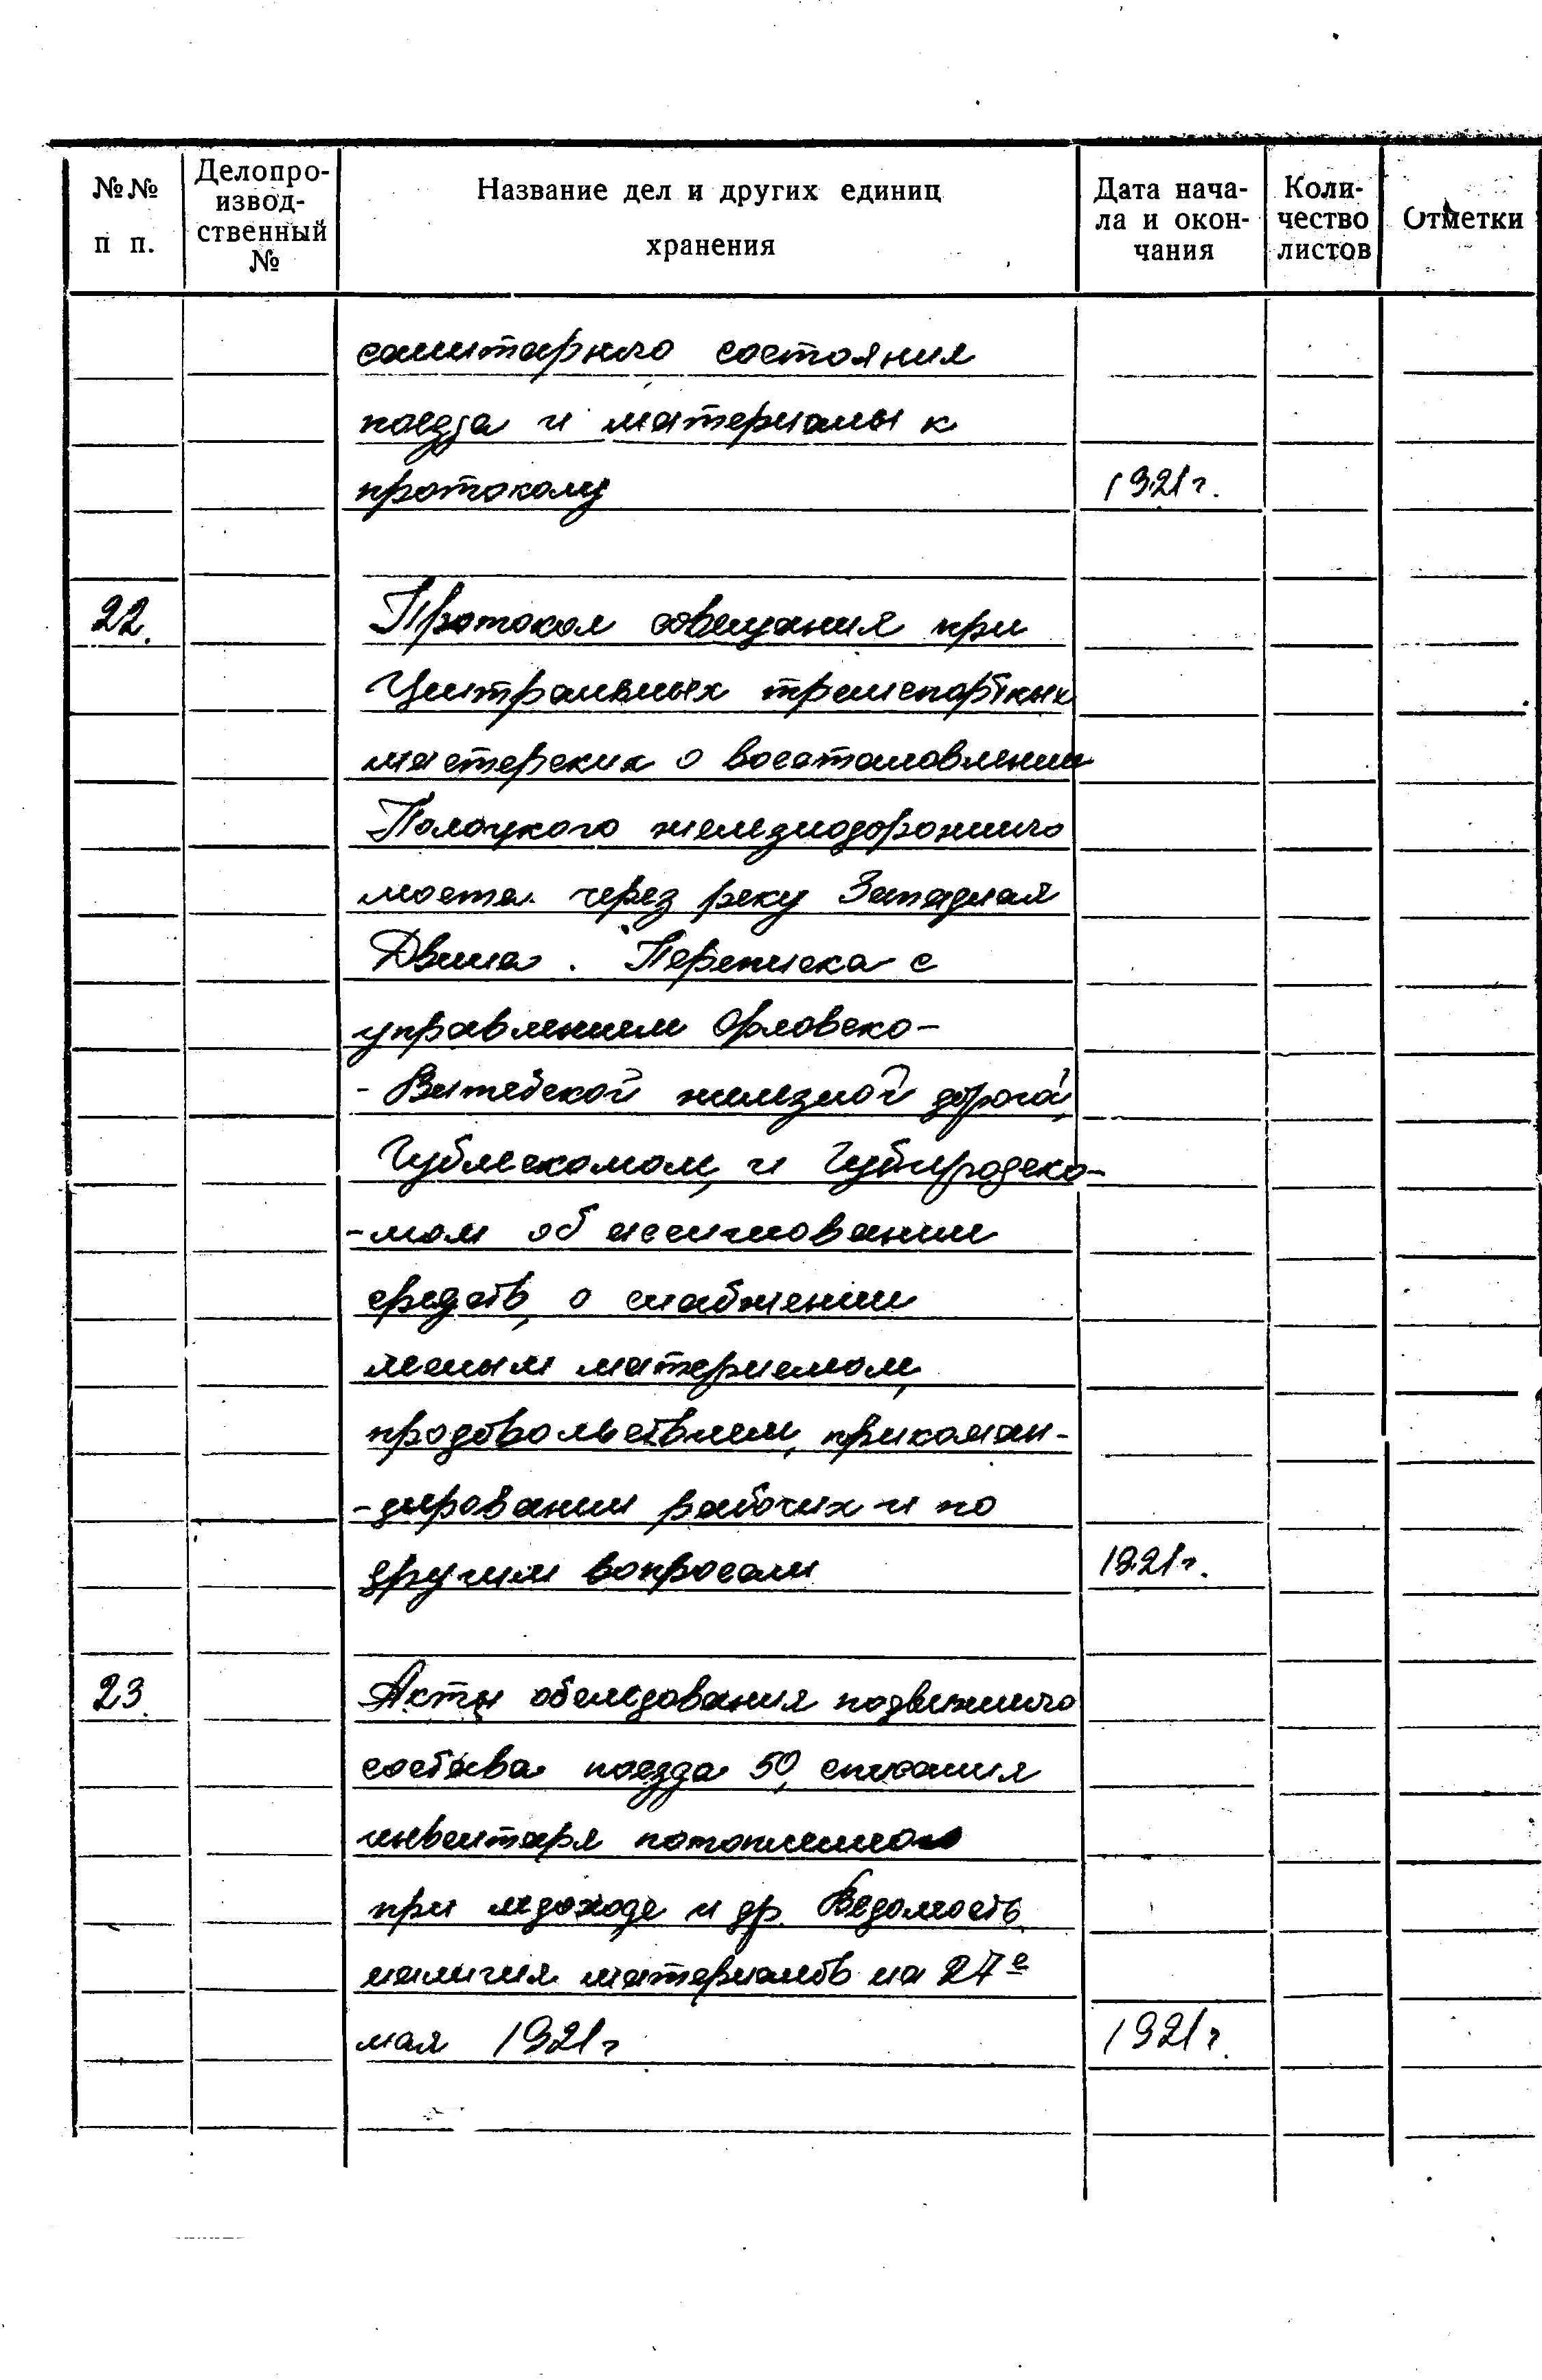 №№ п п.
Делопро-
извод-
ственный
№
Название дел и других единиц
хранения
Дата нача-
ла и окон-
чания
Коли-
чество
листов
Отметки
санитарного состояния
поезда и материалы к
протоколу 1921г.
22. Протокол совещания при
Центральных транспортных
мастерских о восстановлении
Полоцкого железнодорожного
моста через реку Западная
Двина. Переписка с
управлением Орловско-
-Витебской железной дорогой,
ГубLескомом, и Губпродско-
-мом об ассигновании
средств, о снабжении
лесным материалом,
продовольствием, прикоман-
-дировании рабочих и по
другим вопросам 1921г.
23. Акты обследования подвижного
состава поезда 50, списания
инвентаря потопленного
при ледоходе и др. Ведомость
наличия материалов на 27е
мая 1921г 1921г.